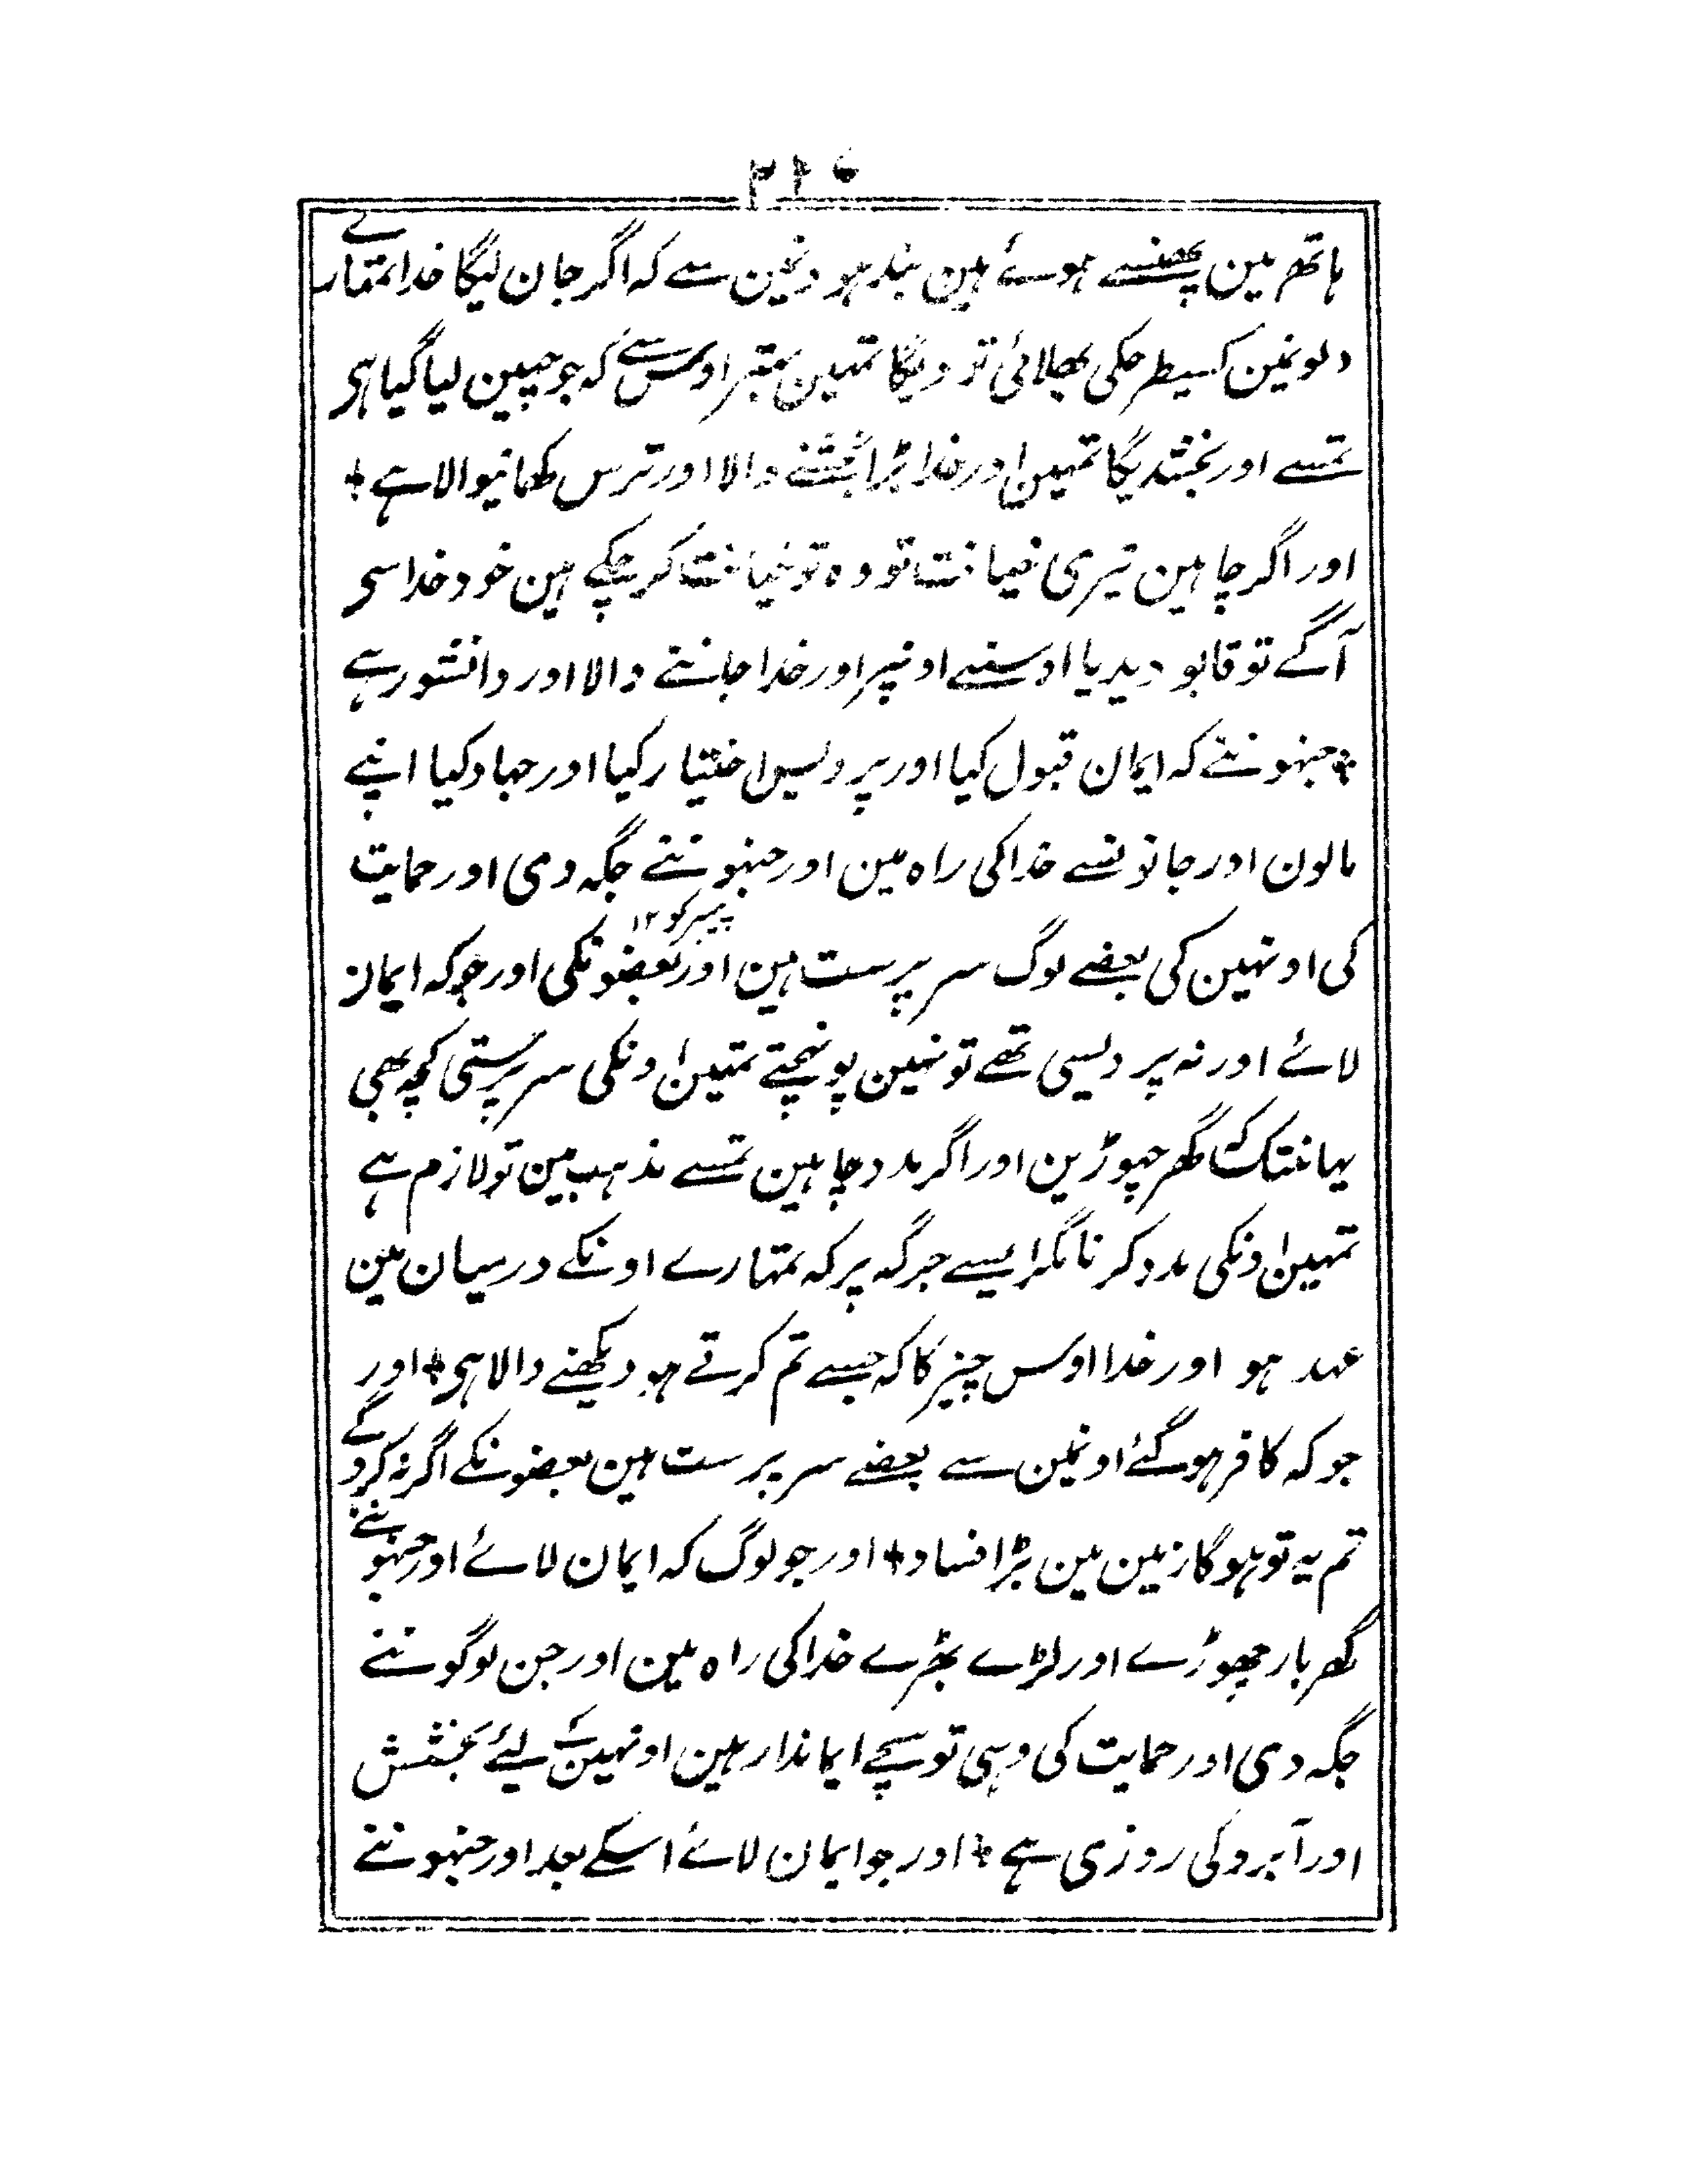 ۲۱۰
ہاتھ مین پھنسے ہوئے ہین بندہو ونمین سے کہ اگر جان لیگا خدا تمھارے
دلونمین کسیطرحکی بھلائی تو دیگا تمہین بہتر اوس سے کہ جو چھین لیا گیا ہی
تمسے اور بخشدیگا تمہین اور خدا بڑا بخشنے والا اور ترس کھانیوالا ہے ٭
اور اگر چاہین تیری خیانت تو وہ تو خیانت کر چکے ہین خود خدا سی
آگے تو قابو دیدیا اوسنے اونپر اور خدا جاننے والا اور دانشور ہے
٭ جنہوننے کہ ایمان قبول کیا اور پردیس اختیار کیا اور جہاد کیا اپنے
مالون اور جانونسے خدا کی راہ مین اور جنہوننے جگہ دی اور حمایت
پیمبر کو ۱۲
کی اونہین کی بعضے لوگ سرپرست ہین اور بعضونکی اور جو کہ ایمان
لائے اور نہ پردیسی تھے تو نہین پونہچتے تمہین اونکی سرپرستی کچھ بھی
یہانتک کہ گھر چھوڑین اور اگر مدد چاہین تمسے مذہب مین تو لازم ہے
تمہین اونکی مدد کرنا مگر ایسے جرگہ پر کہ تمہارے اونکے درمیان مین
عہد ہو اور خدا اوس چیز کا کہ جسے تم کرتے ہو دیکھنے والا ہی ٭ اور
جو کہ کافر ہو گئے اونمین سے بعضے سرپرست ہین بعضونکے اگر نہ کروگے
تم یہ تو ہو گا زمین مین بڑا فساد ٭ اور جو لوگ کہ ایمان لائے اور جنہوننے
گھر بار چھوڑے اور لڑے بھڑے خدا کی راہ مین اور جن لوگوننے
جگہ دی اور حمایت کی وہی تو سچے ایماندار ہین اونہین کے لیئے بخشش
اور آبرو کی روزی ہے ٭ اور جو ایمان لائے اسکے بعد اور جنہوننے